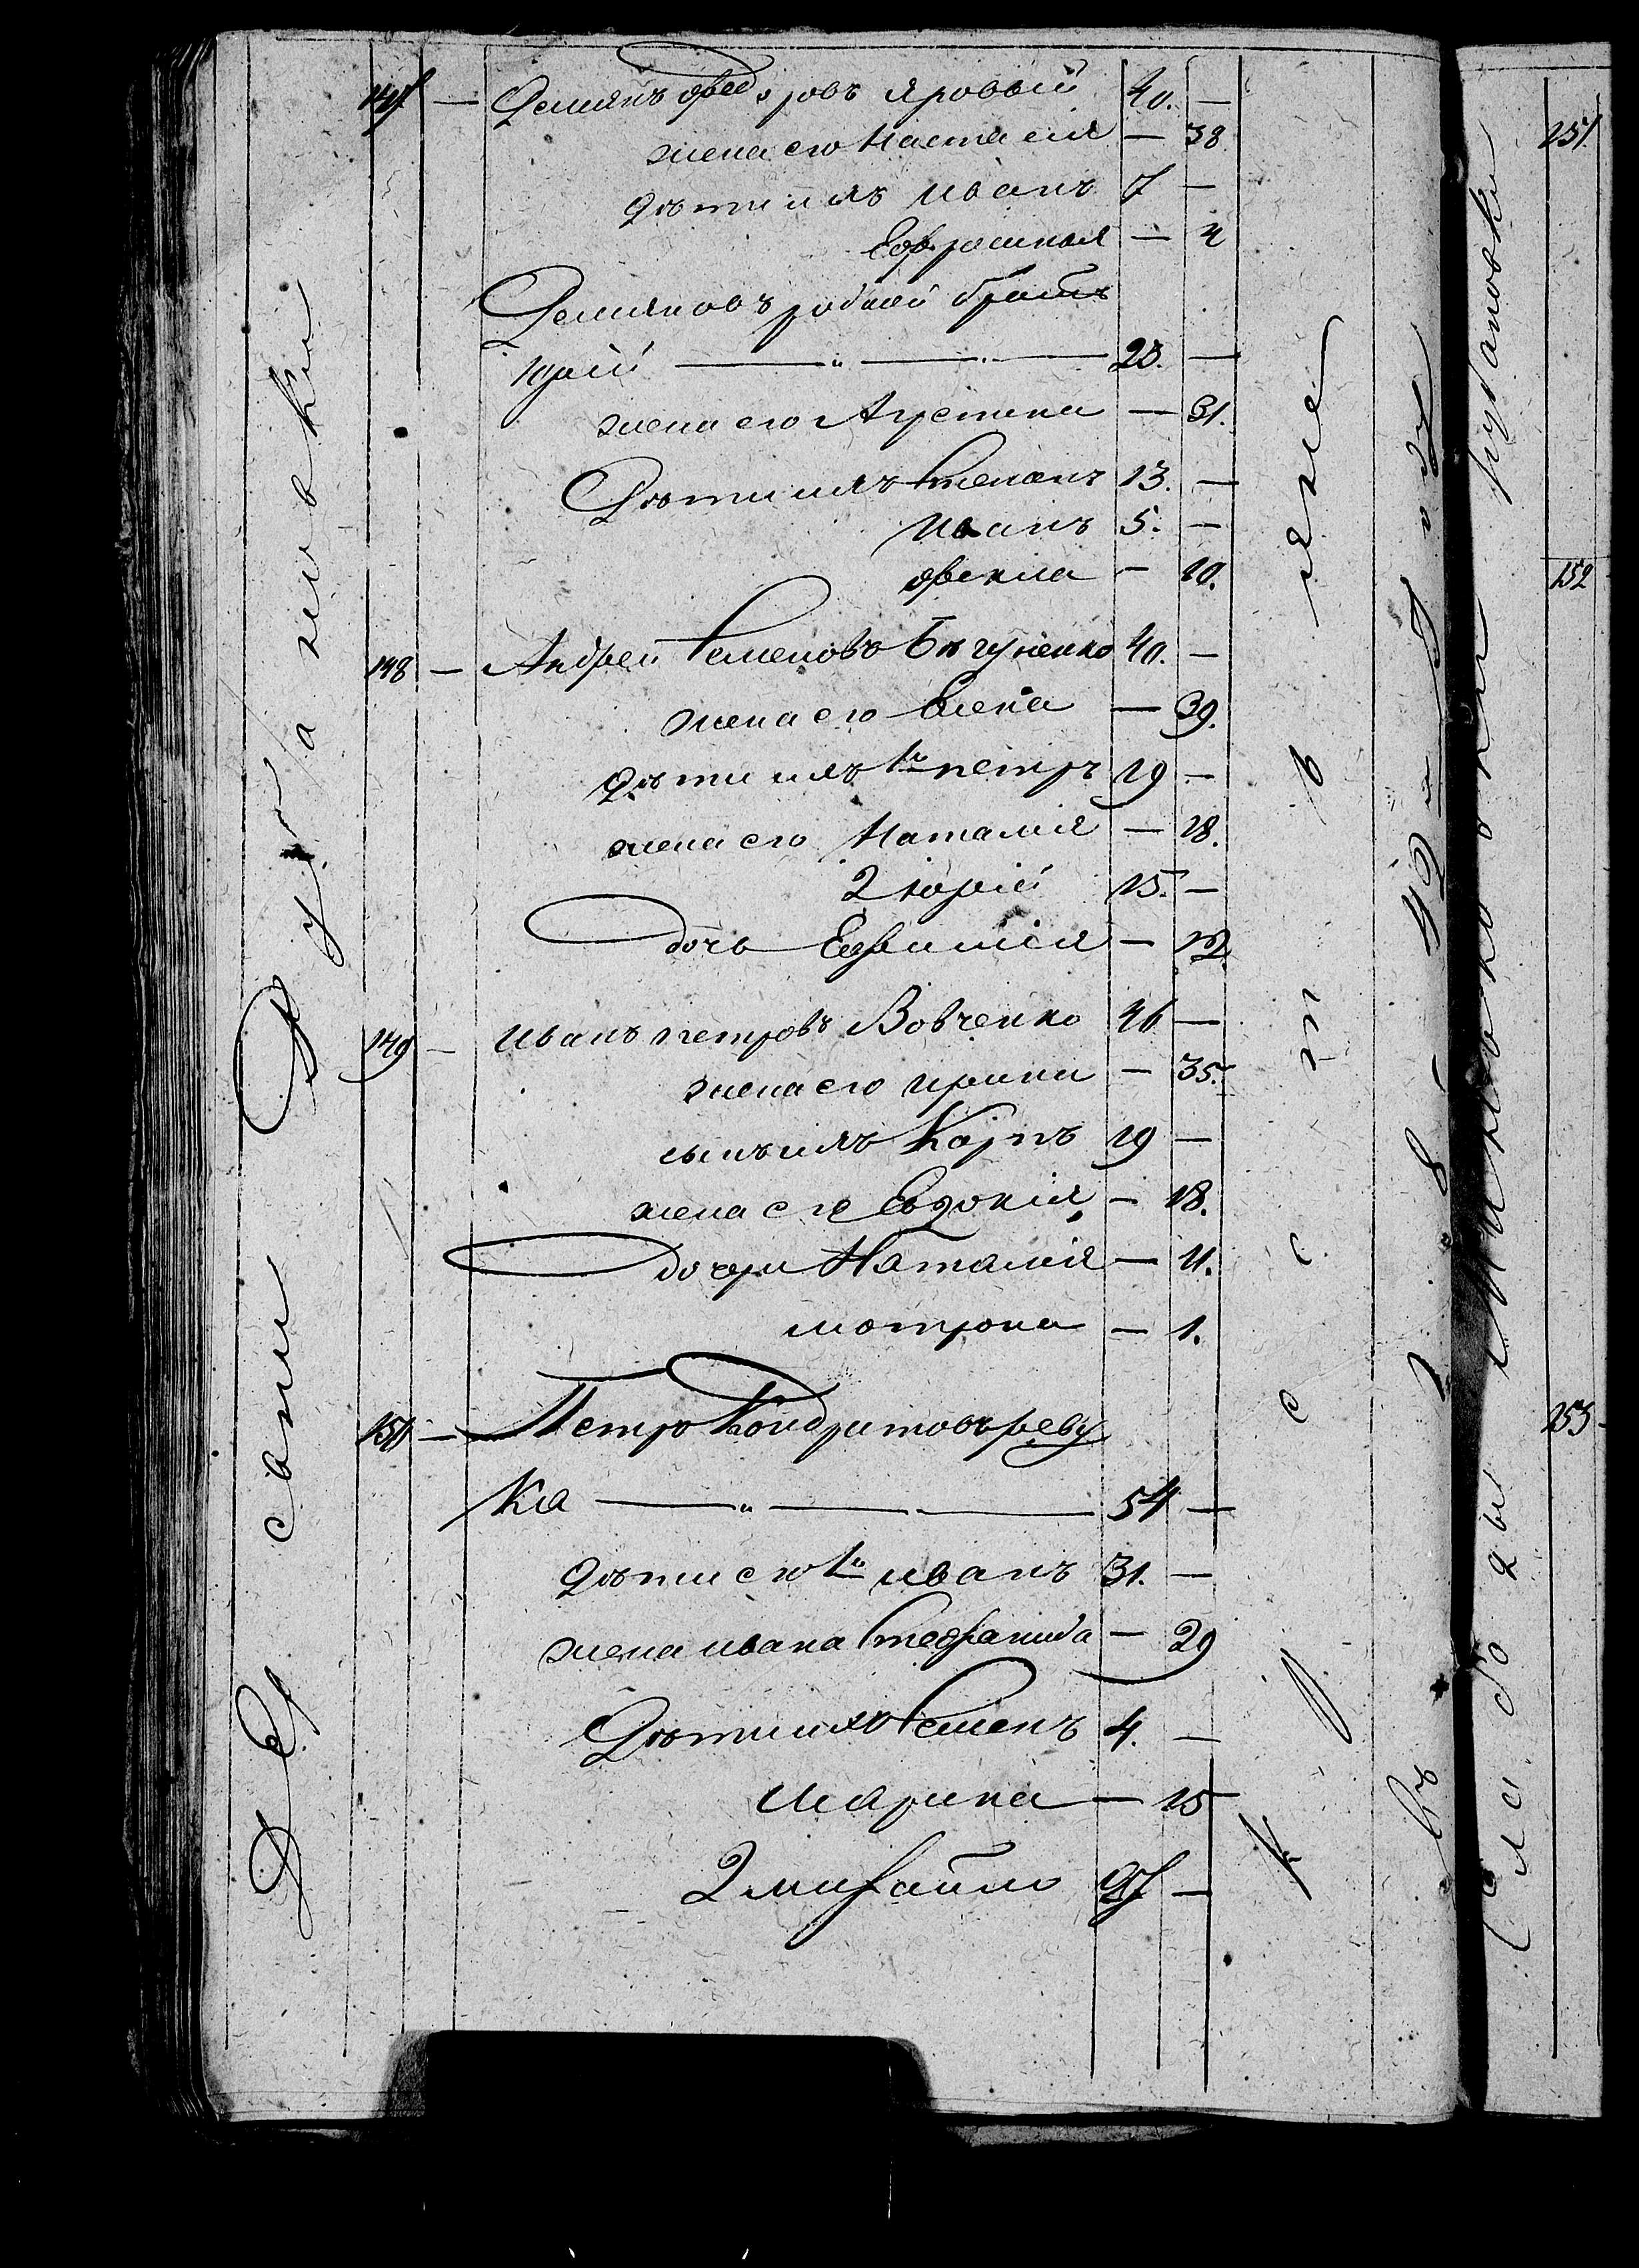 147 — Демянъ Федоровъ Яровый 40. —
жена его Настасия — 38
Дѣти ихъ Иванъ 7 —
Евфросиния — 4
Демяновъ родный братъ
Юрий — „ — 28. —
жена его Агрепина — 31.
Дѣти ихъ Степанъ 13. —
Иванъ 5. —
Фекла — 10.
148 — Андрей Семеновъ 40. —
жена его Елена — 39.
Дѣти ихъ 1й Петръ 19 —
жена его Наталия — 18.
2 Юрий 15. —
дочь Евфимия — 12.
149 — Иванъ Петровъ Вовченко 46 —
жена его Ирина — 35.
сынъ ихъ Карпъ 19 —
жена его Евдокия — 18.
дочери Наталия — 11.
Мотрона — 1.
150 — Петро Кондратовъ Реву
ка — „ — 54 —
Дѣти его 1й Иванъ 31. —
жена Ивана Стефанида — 29
Дѣти ихъ Семенъ 4. —
Марина — 15
2 Михайло 27 —
крестьяне
въ 1842 Году
151.
152
153